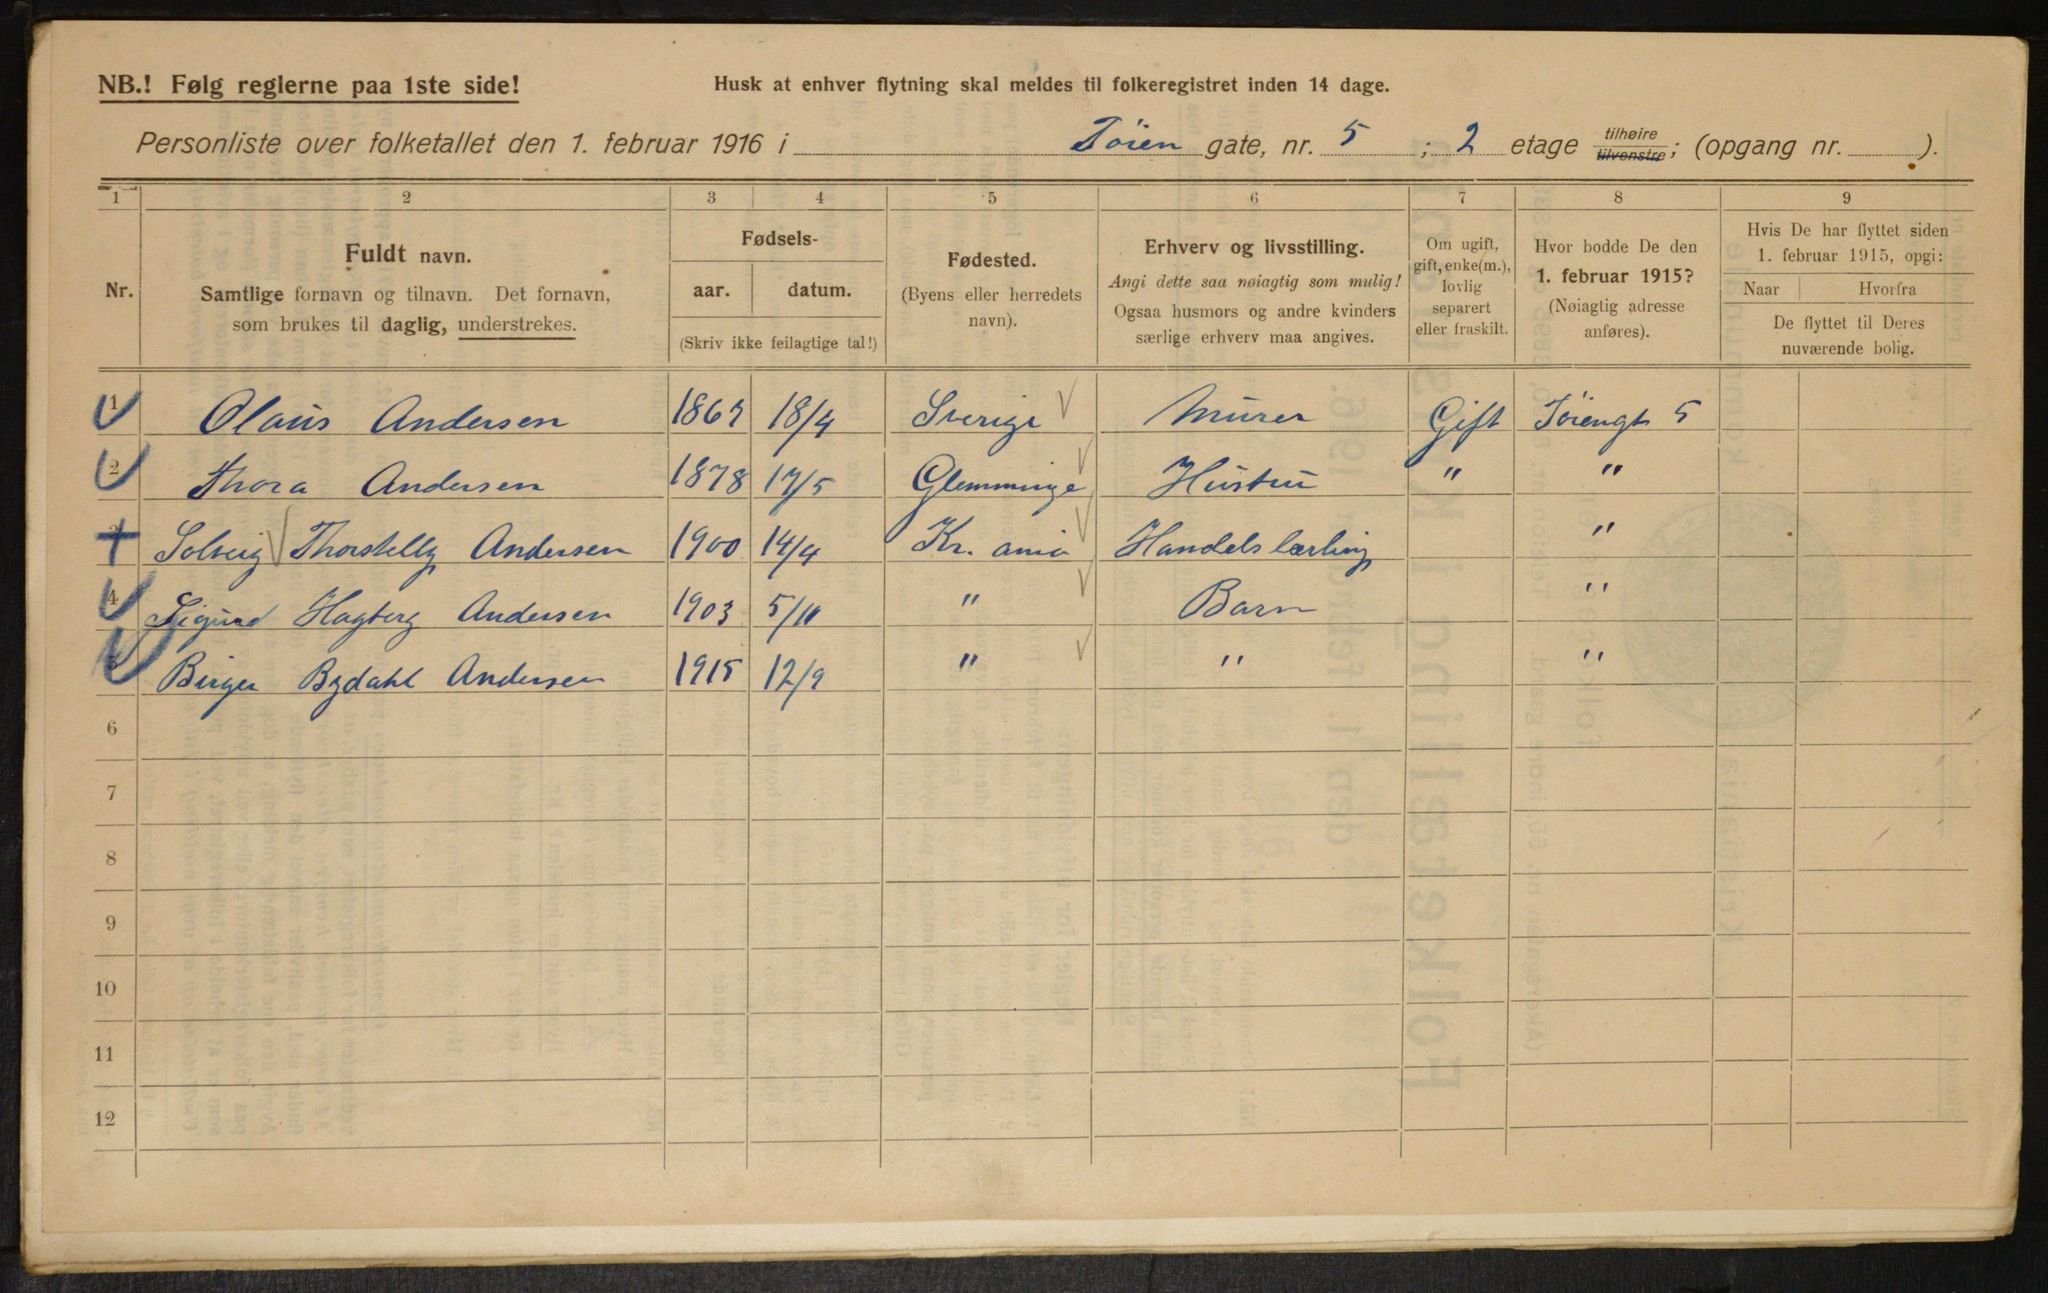 NB.! Følg reglerne paa 1ste side!
Husk at enhver flytning skal meldes til folkeregistret inden 14 dage.
Personliste over folketallet den 1. februar 1916 i Tøien gate, nr. 5 ; 2 etage tilhøire tilvenstre; (opgang nr. ).
1 2 3 4 5 6 7 8 9
Nr.
Fuldt navn.
Samtlige fornavn og tilnavn. Det fornavn,
som brukes til daglig, understrekes.
Fødsels-
aar. datum.
(Skriv ikke feilagtige tal!)
Fødested.
(Byens eller herredets
navn).
Erhverv og livsstilling.
Angi dette saa nøiagtig som mulig!
Ogsaa husmors og andre kvinders
særlige erhverv maa angives.
Om ugift,
gift, enke(m.),
lovlig
separert
eller fraskilt.
Hvor bodde De den
1. februar 1915?
(Nøiagtig adresse
anføres).
Hvis De har flyttet siden
1. februar 1915, opgi:
Naar Hvorfra
De flyttet til Deres
nuværende bolig.
1 Olaus Andersen 18/4 Sverige Murer Gift Tøiengt 5
2 Thora Andersen 1878 17/5 Glemminge Hustru " "
3 Solveig Andersen 1900 14/4 Kr. ania Handelslærling "
4 Sigurd Hagberg Andersen 1903 5/11 " Barn "
5 Birger Bydahl Andersen 1915 12/9 " " "
6
7
8
9
10
11
12